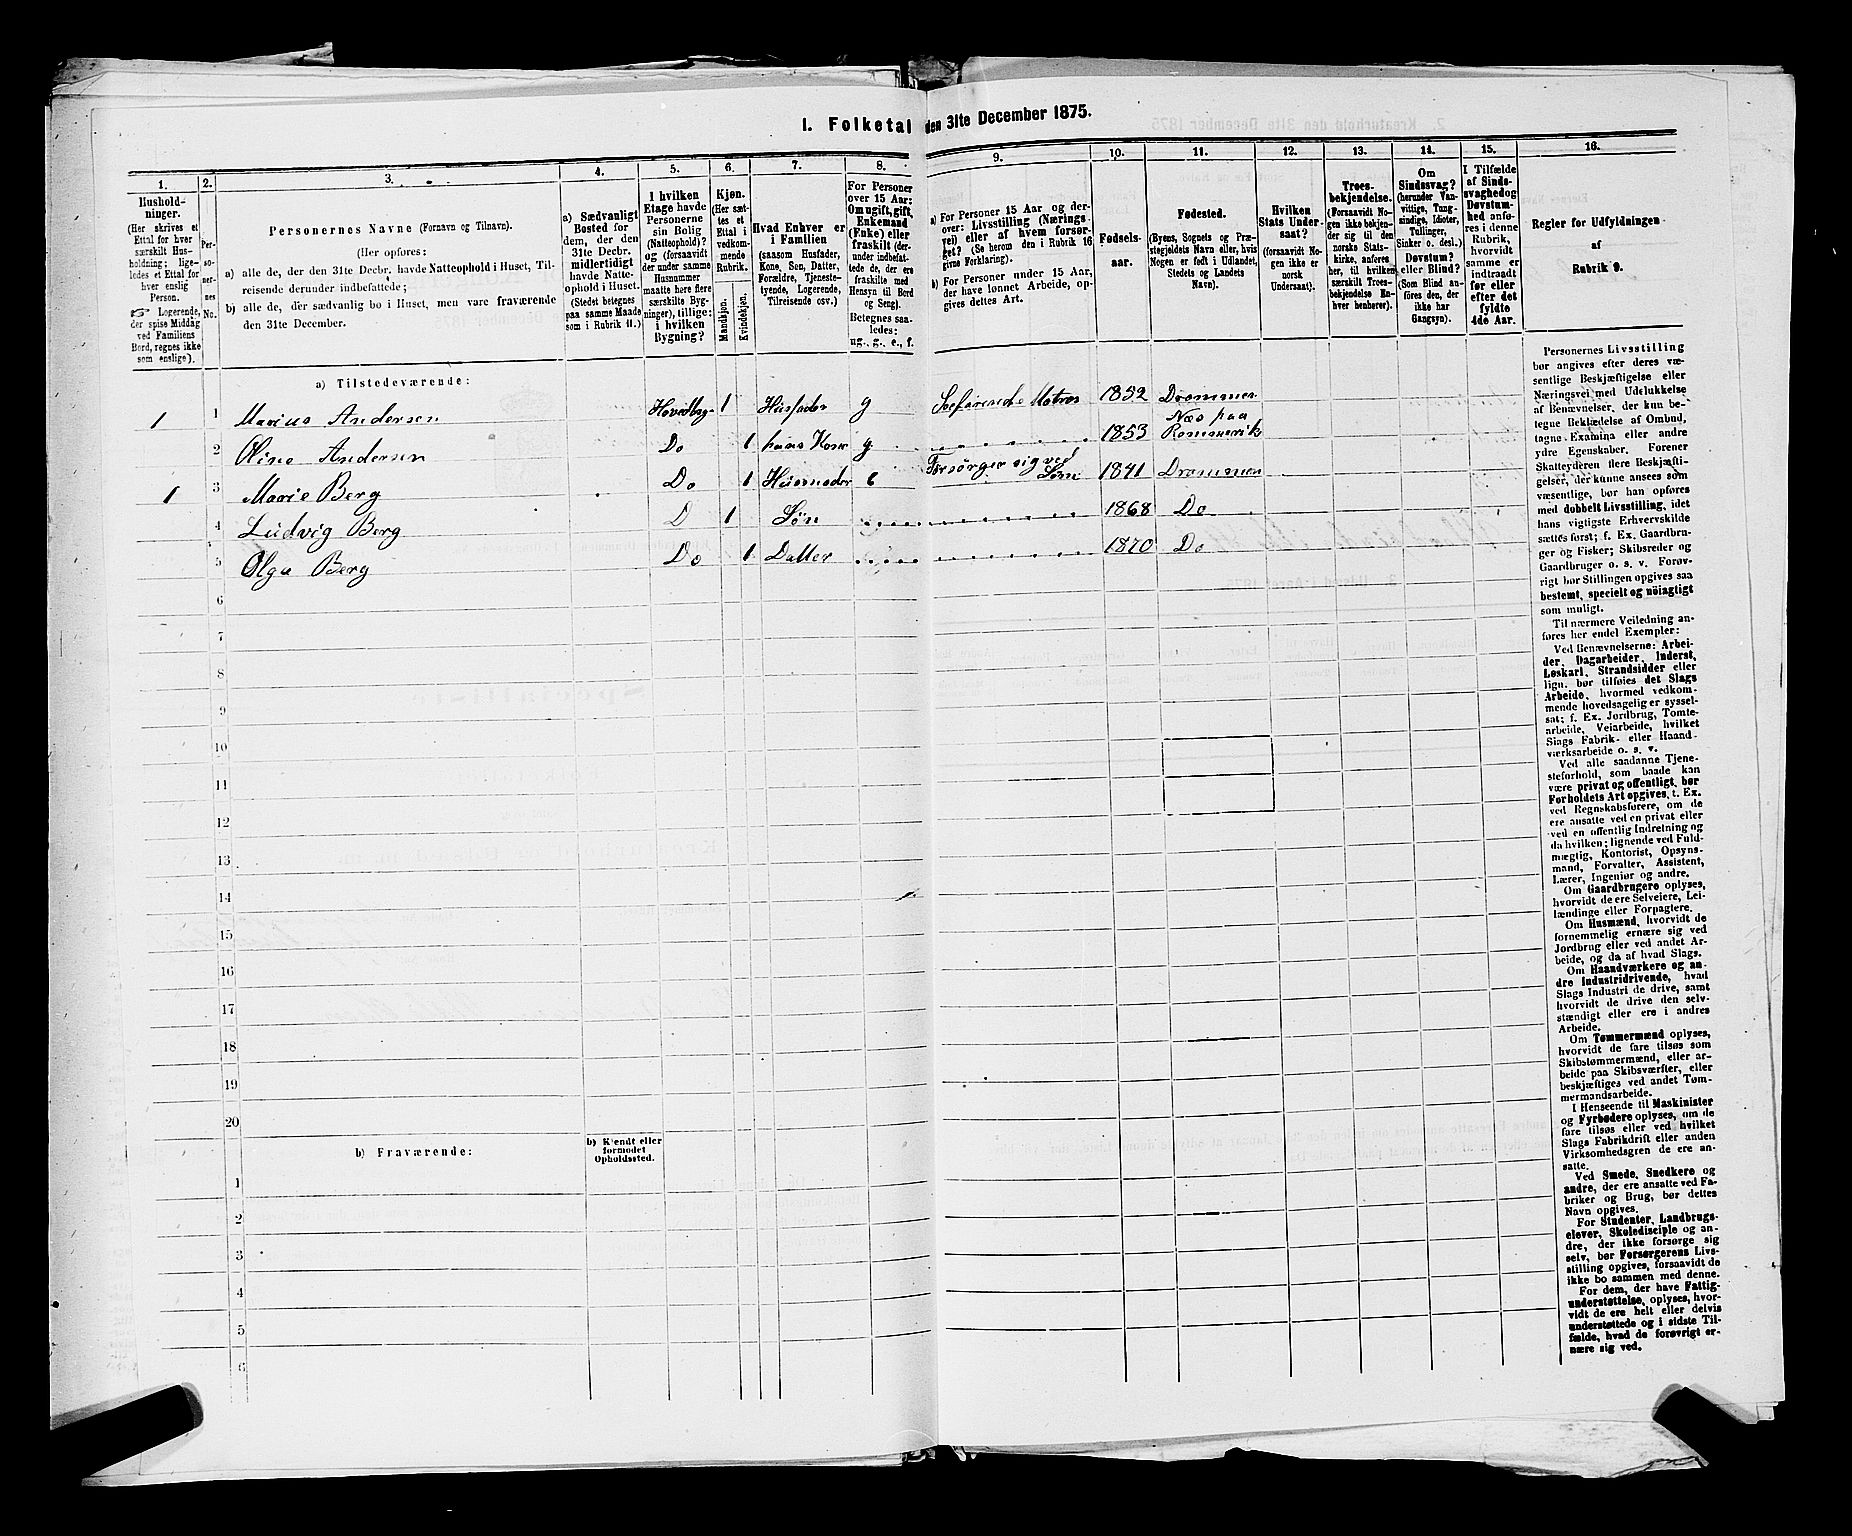 I. Folketal den 31te December 1875.
1. 2. 3. 4. 5. 6. 7. 8. 9. 10. 11. 12. 13. 14. 15. 16.
Hushold-
ninger.
(Her skrives et
Ettal for hver
særskilt Hus-
holdning; lige-
ledes et Ettal for
hver enslig
Person.
☞ Logerende,
der spise Middag
ved Familiens
Bord, regnes ikke
som enslige).
Per-
so-
ner-
nes
No.
Personernes Navne (Fornavn og Tilnavn).
(Her opføres:
a) alle de, der den 31te Decbr. havde Natteophold i Huset, Til-
reisende derunder indbefattede;
b) alle de, der sædvanlig bo i Huset, men vare fraværende
den 31te December.
a) Sædvanligt
Bosted for
dem, der den
31te Decbr.
midlertidigt
havde Natte-
ophold i Huset.
(Stedet betegnes
paa samme Maade
som i Rubrik 11.)
I hvilken
Etage havde
Personerne
sin Bolig
(Natteophold)?
og (forsaavidt
der under samme
Husnummer
maatte høre flere
særskilte Byg-
ninger), tillige:
i hvilken
Bygning?
Kjøn.
(Her sæt-
tes et
Ettal i
vedkom-
mende
Rubrik.
Mandskjøn.
Kvindekjøn.
Hvad Enhver er
i Familien
(saasom Husfader,
Kone, Søn, Datter,
Forældre, Tjeneste-
tyende, Logerende,
Tilreisende osv.)
For Personer
over 15 Aar:
Om ugift, gift,
Enkemand
(Enke) eller
fraskilt (der-
under indbefat-
tede de, der ere
fraskilte med
Hensyn til Bord
og Seng).
Betegnes saa-
ledes:
ug., g., e., f.
a) For Personer 15 Aar og der-
over: Livsstilling (Nærings-
vei) eller af hvem forsør-
get? (Se herom den i Rubrik 16
givne Forklaring).
b) For Personer under 15 Aar,
der have lønnet Arbeide, op-
gives dettes Art.
Fødsels-
aar.
Fødested.
(Byens, Sognets og Præ-
stegjeldets Navn eller, hvis
Nogen er født i Udlandet,
Stedets og Landets
Navn).
Hvilken
Stats Under-
saat?
(forsaavidt No-
gen ikke er
norsk
Undersaat).
Troes-
bekjendelse.
(Forsaavidt No-
gen ikke bekjen-
der sig til den
norske Stats-
kirke, anføres
her, til hvilken
særskilt Troes-
bekjendelse En-
hver henhører).
Om
Sindssvag?
(herunder Van-
vittige, Tung-
sindige, Idioter,
Tullinger,
Sinker o. desl.)
Døvstum?
eller Blind?
(Som Blind an-
føres den, der
ikke har
Gangsyn).
I Tilfælde
af Sinds-
svaghed og
Døvstum-
hed anfø-
res i denne
Rubrik,
hvorvidt
samme er
indtraadt
før eller
efter det
fyldte
4de Aar.
Regler for Udfyldningen
af
Rubrik 9.
a) Tilstedeværende:
1 1 Marius Andersen Hovedbyg- 1 Husfader g Søfarende Matros 1852 Drammen
2 Oline Andersen Do 1 hans Kone g 1853 Næs paa Rommerik
1 3 Marie Berg Do 1 Husmoder e Forsörger sig ved Søm 1841 Drammen
4 Ludvig Berg D 1 Søn 1868 Do
5 Olga Berg Do 1 Datter 1870 Do
6
7
8
9
10
11
12
13
14
15
16
17
18
19
20
b) Fraværende:
b) Kjendt eller
formodet
Opholdssted.
1
2
3
4
5
6
Personernes Livsstilling
bør angives efter deres væ-
sentlige Beskjæftigelse eller
Næringsvei med Udelukkelse
af Benævnelser, der kun be-
tegne Beklædelse af Ombud,
tagne Examina eller andre
ydre Egenskaber. Forener
Skatteyderen flere Beskjæfti-
gelser, der kunne ansees som
væsentlige, bør han opføres
med dobbelt Livsstilling, idet
hans vigtigste Erhvervskilde
sættes først; f. Ex. Gaardbru-
ger og Fisker; Skibsreder og
Gaardbruger o. s. v. Forøv-
rigt bør Stillingen opgives saa
bestemt, specielt og nöiagtigt
som muligt.
Til nærmere Veiledning an-
føres her endel Exempler:
Ved Benævnelserne: Arbei-
der, Dagarbeider, Inderst,
Løskarl, Strandsidder eller
lign. bør tilføies det Slags
Arbeide, hvormed vedkom-
mende hovedsagelig er syssel-
sat; f. Ex. Jordbrug, Tomte-
arbeide, Veiarbeide, hvilket
Slags Fabrik- eller Haand-
værksarbeide o. s. v.
Ved alle saadanne Tjene-
steforhold, som baade kan
være privat og offentligt, bør
Forholdets Art opgives, t. Ex.
ved Regnskabsførere, om de
ere ansatte ved en privat eller
ved en offentlig Indretning og
da hvilken; lignende ved Fuld-
mægtig, Kontorist, Opsyns-
mand, Forvalter, Assistent,
Lærer, Ingeniør og andre.
Om Gaardbrugere oplyses,
hvorvidt de ere Selveiere, Lei-
lændinge eller Forpagtere.
Om Husmænd, hvorvidt de
fornemmelig ernære sig ved
Jordbrug eller ved andet Ar-
beide, og da af hvad Slags.
Om Haandværkere og an-
dre Industridrivende, hvad
Slags Industri de drive, samt
hvorvidt de drive den selv-
stændigt eller ere i andres
Arbeide.
Om Tømmermænd oplyses,
hvorvidt de fare tilsøs som
Skibstømmermænd, eller ar-
beide paa Skibsværfter, eller
beskjæftiges ved andet Tøm-
mermandsarbeide.
I Henseende til Maskinister
og Fyrbødere oplyses, om de
fare tilsøs eller ved hvilket
Slags Fabrikdrift eller anden
Virksomhedsgren de ere an-
satte.
Ved Smede, Snedkere og
andre, der ere ansatte ved Fa-
briker og Brug, bør dettes
Navn opgives.
For Studenter, Landbrugs-
elever, Skoledisciple og an-
dre, der ikke forsørge sig
selv, bør Forsørgerens Livs-
stilling opgives, forsaavidt de
ikke bo sammen med denne.
For dem, der have Fattig-
understøttelse, oplyses, hvor-
vidt de ere helt eller delvis
understøttede og i sidste Til-
fælde, hvad de forøvrigt er-
nære sig ved.